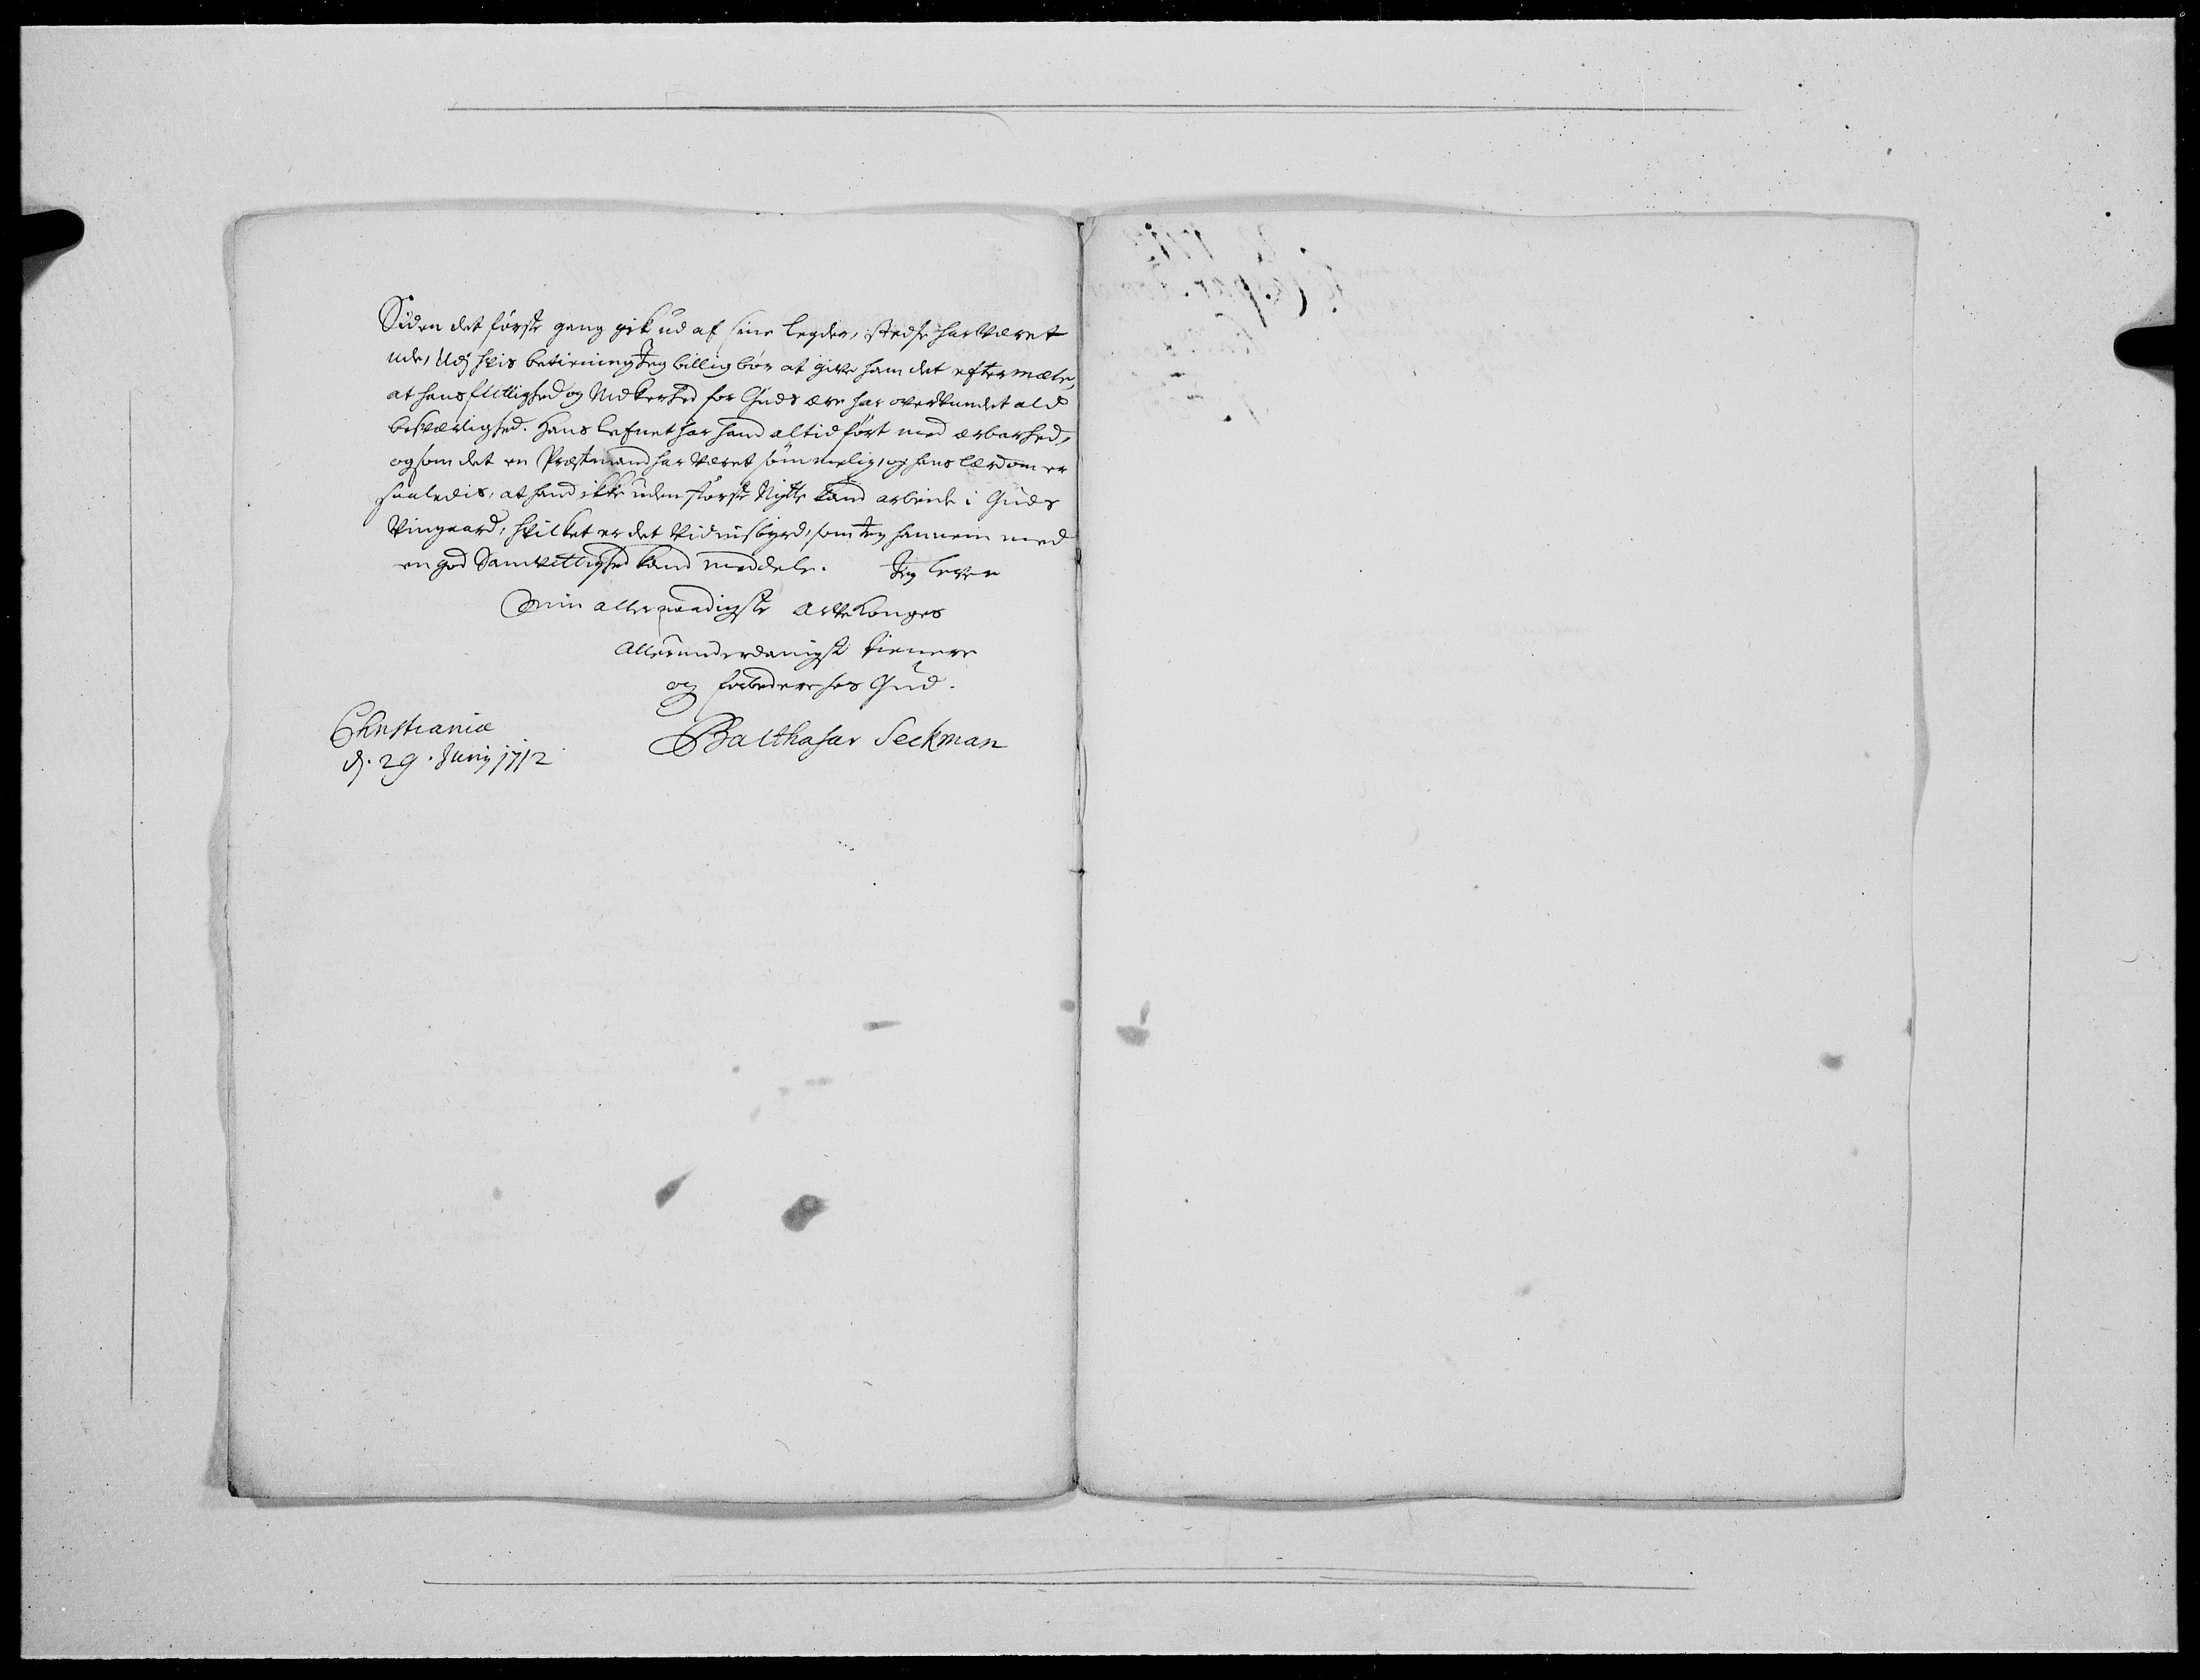 Siden det første gang gik ud af sine legder, stedse har været
ude, Udj hvis betiening Jeg billig bør at give ham det eftermæle,
at hans flittighed og Nidkerhed for Guds ære har overvundet ald
besværlighed. Hans lefnet har hand altid ført med ærbarhed,
og som det en Præstmand har været sømmelig, og hans lærdom er
saaledis, at hand ikke uden største Nytte kand arbeide i Guds
Vingaard, hvilket er det Vidnisbyrd, som Jeg hannem med
en god Samvittighed kand meddele. Jeg lever
Min allernaadigste ArveKonges
Allerunderdanigst tienere
og forbedere hos Gud.
Christianiæ
d. 29. Junij 1712
Balthasar Seckman